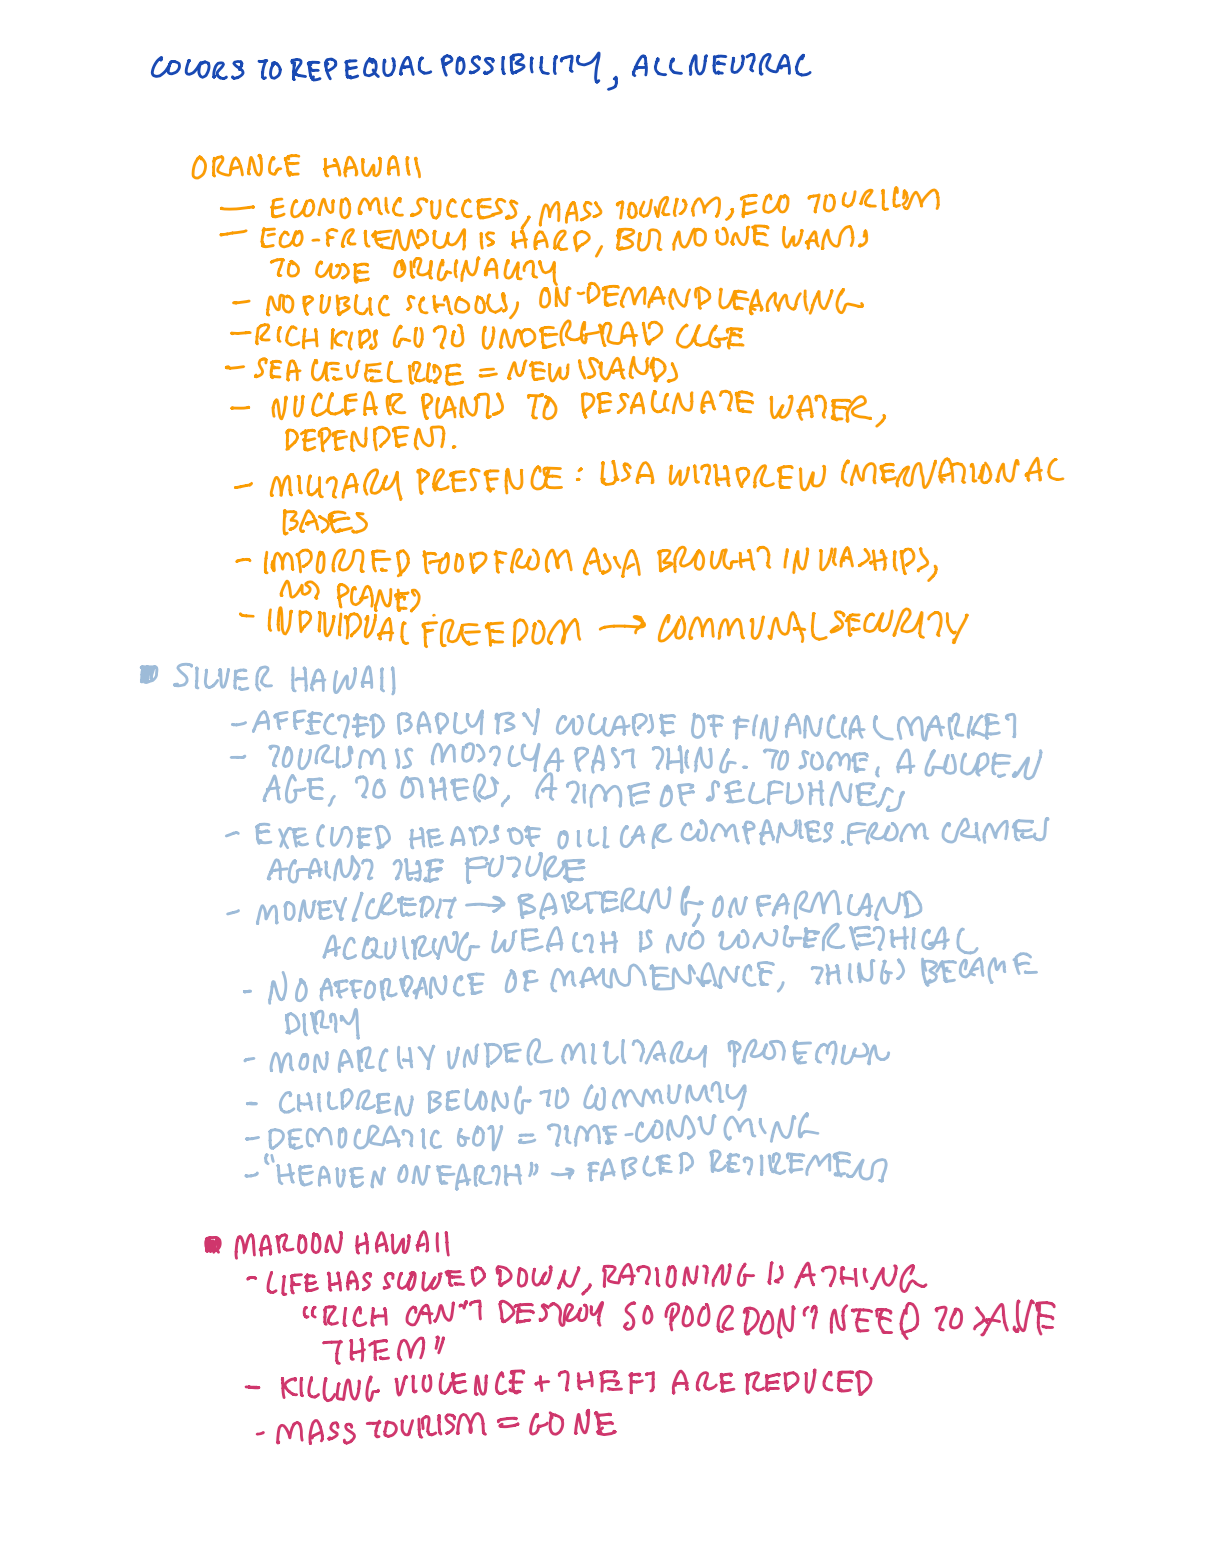 COLORS TO REP EQUAL POSSIBILITY, ALL NEUTRAL
ORANGE HAWAII
— ECONOMIC SUCCESS, MASS TOURISM, ECO TOURISM
— ECO-FRIENDLY IS HARD, BUT NO ONE WANTS
TO LOSE ORIGINALITY
- NO PUBLIC SCHOOLS, ON-DEMAND LEARNING
- RICH KIDS GO TO UNDERGRAD CLGE
- SEA LEVEL RISE = NEW ISLANDS
- NUCLEAR PLANTS TO DESALINATE WATER,
DEPENDENT.
- MILITARY PRESENCE: USA WITHDREW INTERNATIONAL
BASES
- IMPORTED FOOD FROM ASIA BROUGHT IN VIA SHIPS,
NOT PLANES
- INDIVIDUAL FREEDOM → COMMUNAL SECURITY
SILVER HAWAII
- AFFECTED BADLY BY COLLAPSE OF FINANCIAL MARKET
- TOURISM IS MOSTLY A PAST THING. TO SOME, A GOLDEN
AGE, TO OTHERS, A TIME OF SELFISHNESS
- EXECUTED HEADS OF OIL / CAR COMPANIES. FROM CRIMES
AGAINST THE FUTURE
- MONEY/CREDIT → BARTERING, ON FARMLAND
ACQUIRING WEALTH IS NO LONGER ETHICAL
- NO AFFORDANCE OF MAINTENANCE, THINGS BECAME
DIRTY
- MONARCHY UNDER MILITARY PROTECTION
- CHILDREN BELONG TO COMMUNITY
- DEMOCRATIC GOV = TIME-CONSUMING
- "HEAVEN ON EARTH" → FABLED RETIREMENT
MAROON HAWAII
- LIFE HAS SLOWED DOWN, RATIONING IS A THING
"RICH CAN'T DESTROY SO POOR DON'T NEED TO SAVE
THEM"
- KILLING VIOLENCE + THEFT ARE REDUCED
- MASS TOURISM = GONE